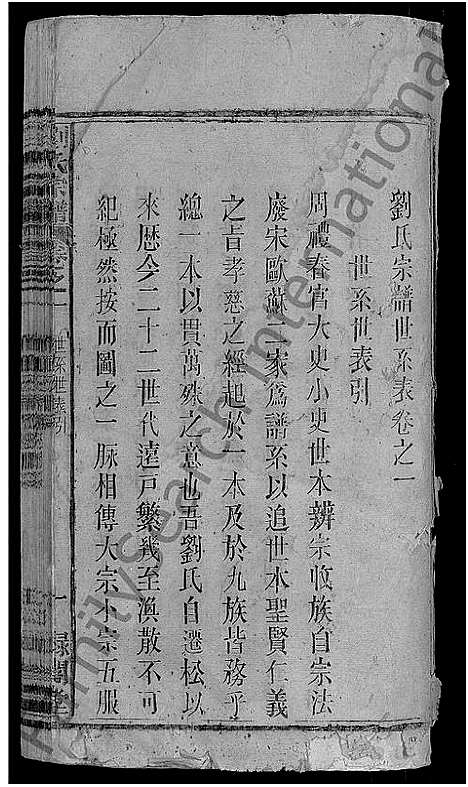 劉氏宗譜世系表卷之一
世系世表引
周禮春官大史小史世本辨宗收族自宗法
廢宋歐蘇二家爲譜系以追世本聖賢仁義
之旨孝慈之經起於一本及於九族皆務乎
總一本以貫萬殊之意也吾劉氏自遷松以
來歷今二十二世代遠戶繁幾至渙散不可
紀極然按而圖之一脉相傳大宗小宗五服
劉氏宗譜
卷之一
世系世表引
一
堂
FamilySearch International